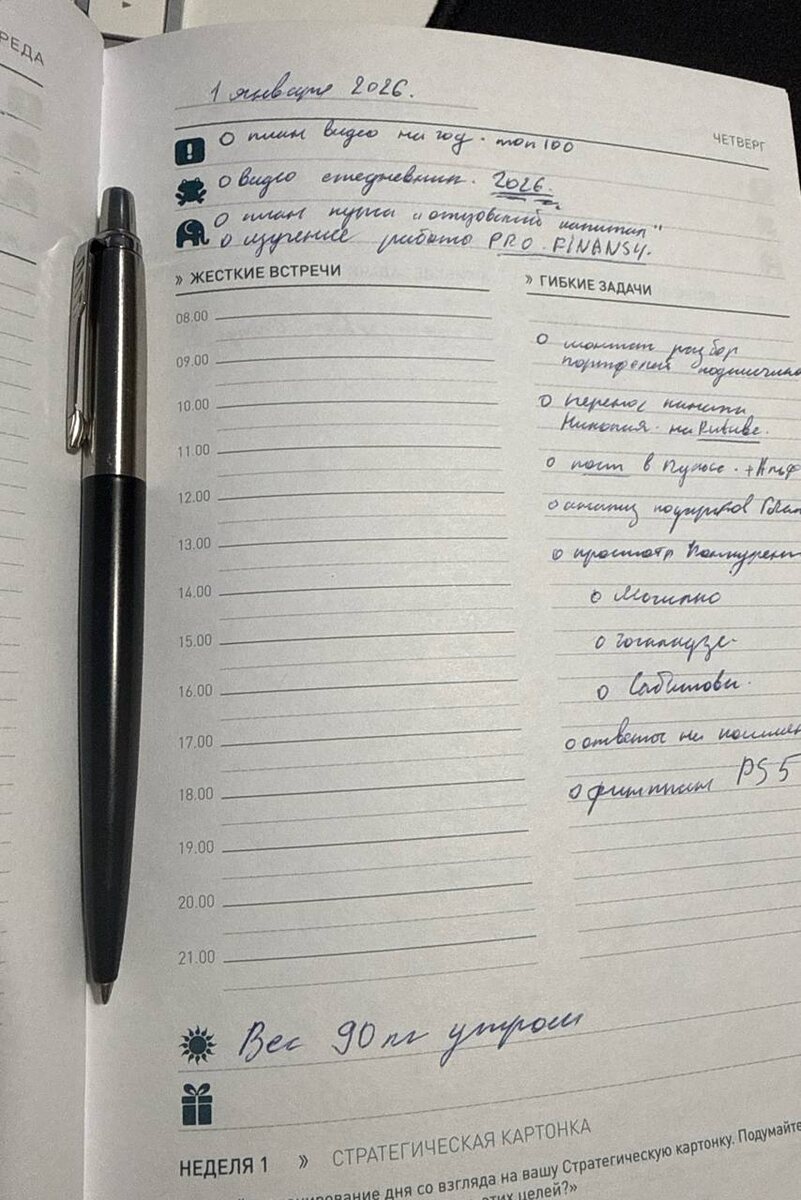 РЕДА
1 января 2026.
ЧЕТВЕРГ
план видео на год. топ 100
видео ежедневник. 2026.
план курса "отцовский капитал"
изучение работа PRO.FINANSY.
» ЖЕСТКИЕ ВСТРЕЧИ
» ГИБКИЕ ЗАДАЧИ
08.00
09.00
10.00
11.00
12.00
13.00
14.00
15.00
16.00
17.00
18.00
19.00
20.00
21.00
монтаж разбор
портфелей подписчико
перенос
на
пост в Пульсе. +Альф
анализ
просмотр конкурент
Могилко
Гогаладзе
ответы на коммен
PS 5
Вес 90 кг утром
НЕДЕЛЯ 1 » СТРАТЕГИЧЕСКАЯ КАРТОНКА
нирование дня со взгляда на вашу Стратегическую картонку. Подумайте
этих целей?»